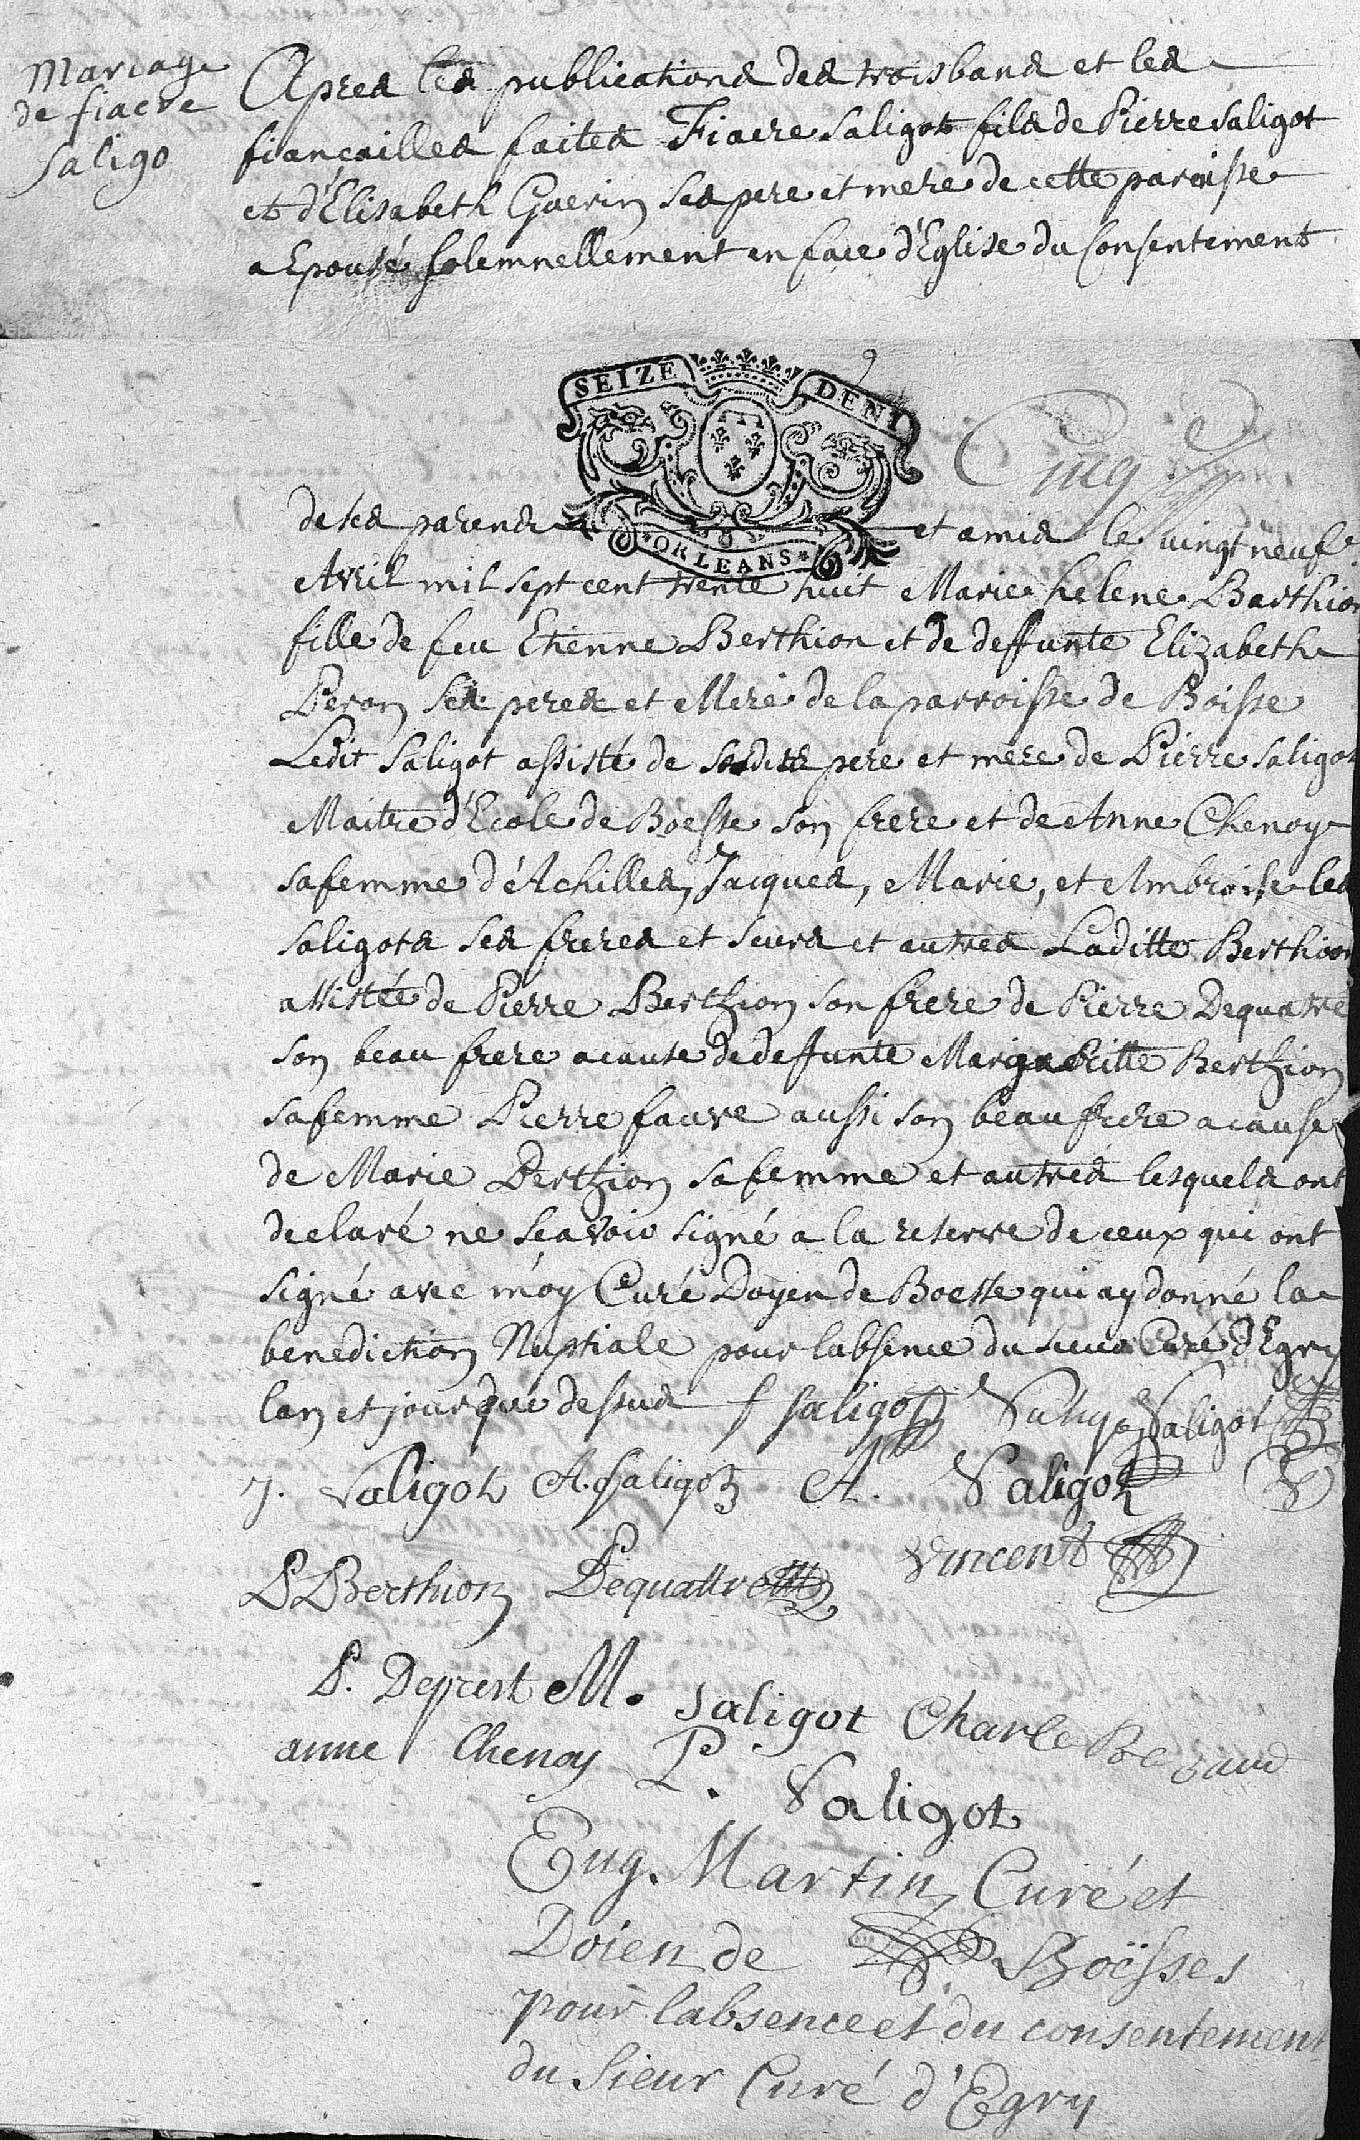 Mariage
de fiacre
Saligo
Apres les publications des trois bans et les
fiancailles faites Fiacre Saligot fils de Pierre Saligot
et d'Élisabeth Guerin ses pere et mere de cette paroisse
a Epousé solemnellement en face d'Eglise du Consentement
SEIZE DENI
Cinq
de ses parens et amis le vingt neuf
ORLEANS
Avril mil sept cent trente huit Marie helene Barthion
fille de feu Etienne Berthion et de deffunte Elizabeth
Peron ses peres et Mere de la parroisse de Boisse
Ledit Saligot assisté de sesdits pere et mere de Pierre Saligot
Maitre d'Ecole de Boësse son frere et de Anne Chenoy
sa femme d'Achilles, Jacques, Marie, et Ambroise les
Saligots ses freres et seurs et autres Laditte Berthion
assistée de Pierre Berthion son frere de Pierre Dequatre
son beau frere a cause de deffunte Margueritte Berthion
sa femme Pierre fauve aussi son beau frere a cause
de Marie Berthion sa femme et autres lesquels ont
declaré ne sçavoir signé a la reserve de ceux qui ont
signé avec moy Curé Doyen de Boesse qui ay donné la
benediction Nuptiale pour l'absence du sieur Curé d'Egry
lan et jour que dessus f Saligot Saligot
J. Saligot A. Saligot A. Saligot
P Berthion Dequattre Vincent
P. Deprest M. Saligot Charle
anne Chenoy P. Saligot
Eug. Martin, Curé et
Doien de Boësses
pour labsence et du consentement
du Sieur Curé d'Egry